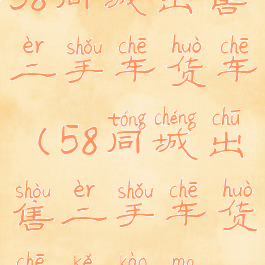 58同城出售
èr shǒu chē huò chē
二手车货车
tóng chéng chū
（58同城出
shòu èr shǒu chē huò
售二手车货
chē kě kào ma